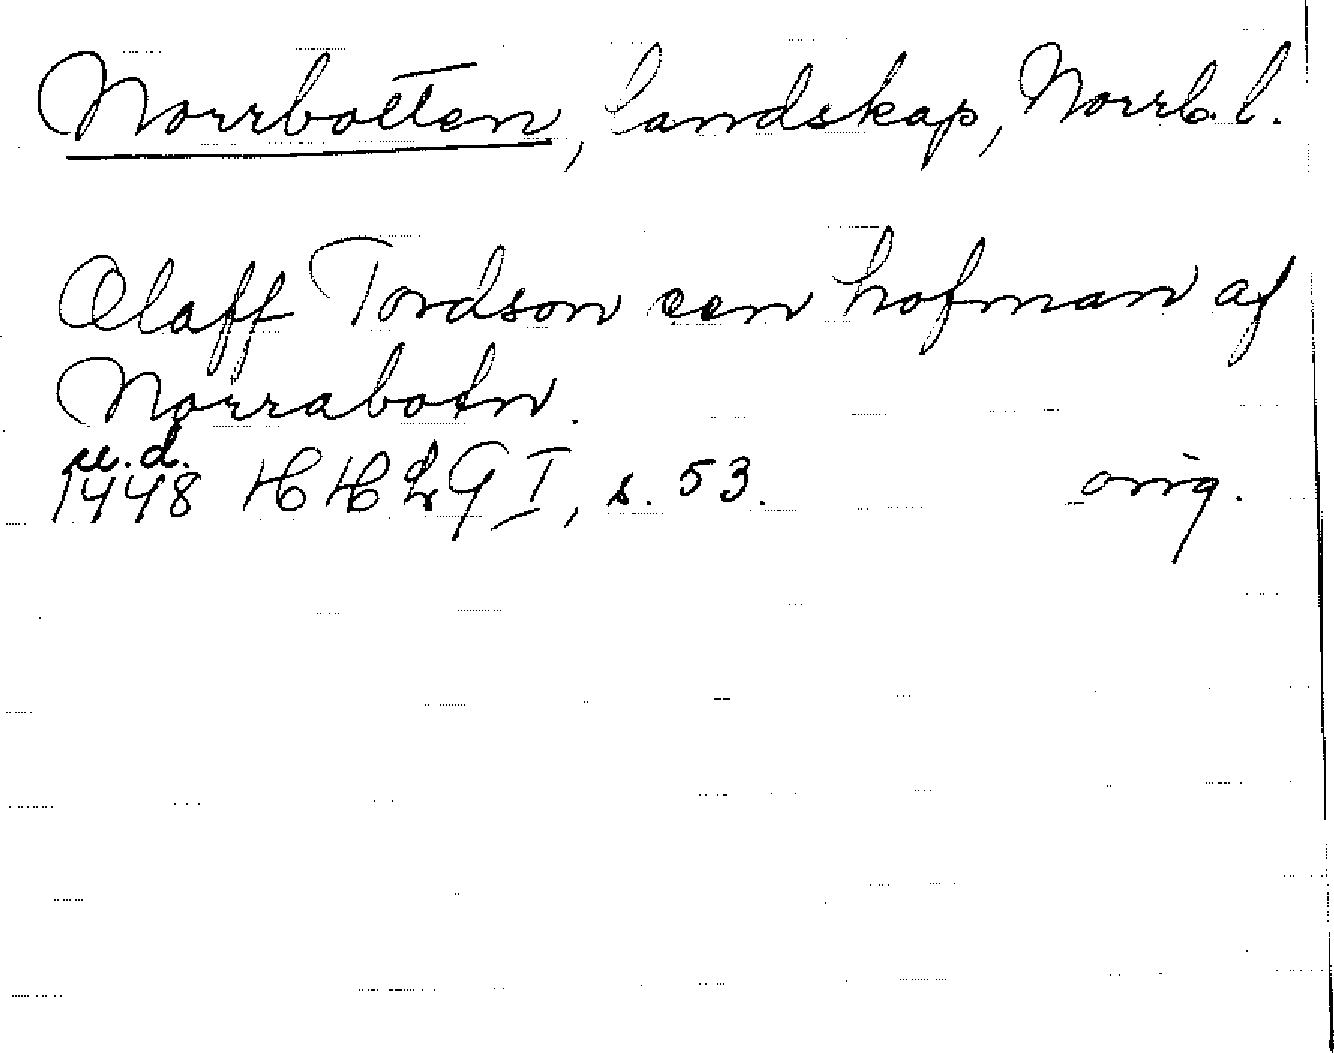 Norrbotten, landskap, Norrb. l.
Olaff Tordson een hofman af
Norrabotn.
u.d.
1448 HH LG I, s. 53. orig.